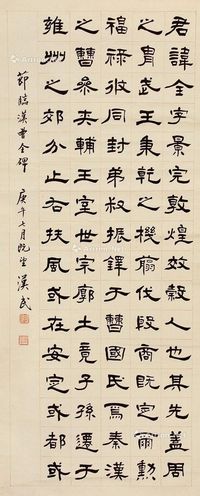 君諱全字景完敦煌效穀人也其先蓋周
之冑武王秉乾之機翦伐殷商既定爾勳
福祿攸同封弟叔振鐸于曹國氏焉秦漢
之曹參夾輔王室世宗廓土竟子孫遷于
雍州之郊分止右扶風或在安定或都或
節臨漢曹全碑 庚午七月既望 漢民